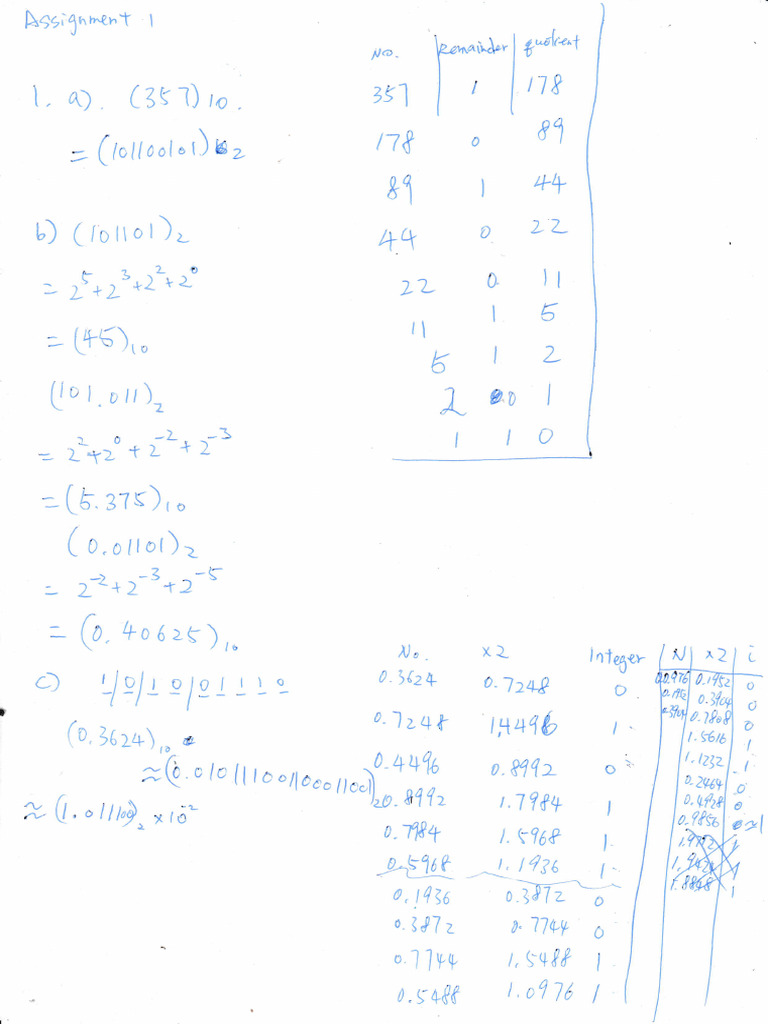 Assignment 1
1. a). (357)10.
= (101100101)2
b) (101101)2
= 2^5+2^3+2^2+2^0
= (45)10
(101.011)2
= 2^2+2^0+2^-2+2^-3
= (5.375)10
(0.01101)2
= 2^-2+2^-3+2^-5
= (0.40625)10
c) 1/0/1 0 0 1 1 1 0
(0.3624)10
≈(0.010111001100011001)2
≈ (1.011100)2 ×10^-2
No. Remainder quotient
357 1 178
178 0 89
89 1 44
44 0 22
22 0 11
11 1 5
5 1 2
2 0 1
1 1 0
No. ×2 Integer
0.3624 0.7248 0
0.7248 1.4496 1
0.4496 0.8992 0
0.8992 1.7984 1
0.7984 1.5968 1
0.5968 1.1936 1
0.1936 0.3872 0
0.3872 0.7744 0
0.7744 1.5488 1
0.5488 1.0976 1
N ×2 i
0.0976 0.1952 0
0.1952 0.3904 0
0.3904 0.7808 0
1.5616 1
1.1232 1
0.2464 0
0.4928 0
0.9856 0≈1